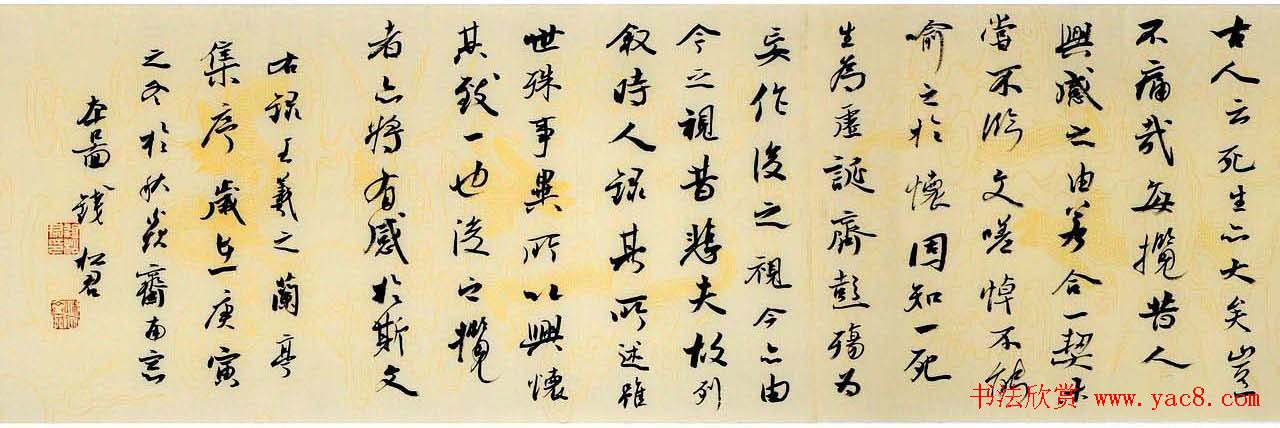 古人云死生亦大矣豈
不痛哉每攬昔人
興感之由若合一契未
嘗不臨文嗟悼不能
喻之於懷固知一死
生為虛誕齊彭殤為
妄作後之視今亦由
今之視昔悲夫故列
敘時人錄其所述雖
世殊事異所以興懷
其致一也後之攬
者亦將有感於斯文
右錄王羲之蘭亭
集序歲在庚寅
之冬於秋齋南窗
錢松君
书法欣赏 www.yac8.com